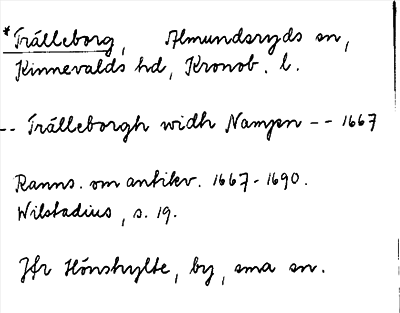 *Trälleborg, Almundsryds sn,
Kinnevalds hd, Kronob. l.
-- Trälleborgh widh Nampen -- 1667
Ranns. om antikv. 1667-1690.
Wilstadius, s. 19.
Jfr Hönshylte, by, sma sn.